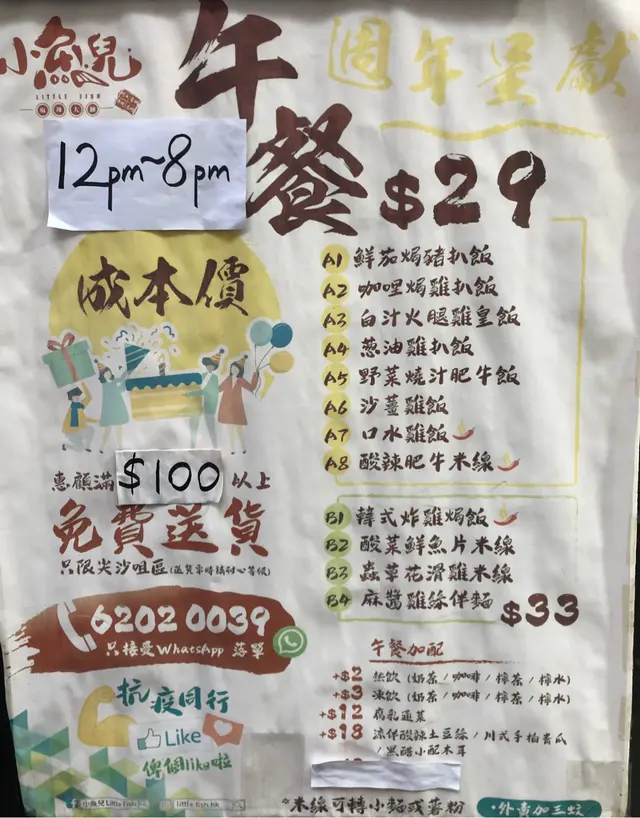 小魚兒
LITTLE FISH
午餐
週年呈獻
12pm~8pm
$29
成本價
A1 鮮茄焗豬扒飯
A2 咖哩焗雞扒飯
A3 白汁火腿雞皇飯
A4 蔥油雞扒飯
A5 野菜燒汁肥牛飯
A6 沙薑雞飯
A7 口水雞飯
A8 酸辣肥牛米線
惠顧滿 $100 以上
免費送貨
只限尖沙咀區
B1 韓式炸雞焗飯
B2 酸菜鮮魚片米線
B3 蟲草花滑雞米線
B4 麻醬雞絲伴麵
$33
6202 0039
只接受WhatsApp 落單
午餐加配
+$2 熱飲 (奶茶/咖啡/檸茶/檸水)
+$3 凍飲 (奶茶/咖啡/檸茶/檸水)
+$12 腐乳通菜
+$18 涼伴酸辣土豆絲/川式手拍青瓜
/黑醋小配木耳
抗疫同行
Like
俾個like啦
小魚兒Little Fish
little fish.hk
米線可轉小麵或薯粉
外賣加三蚊